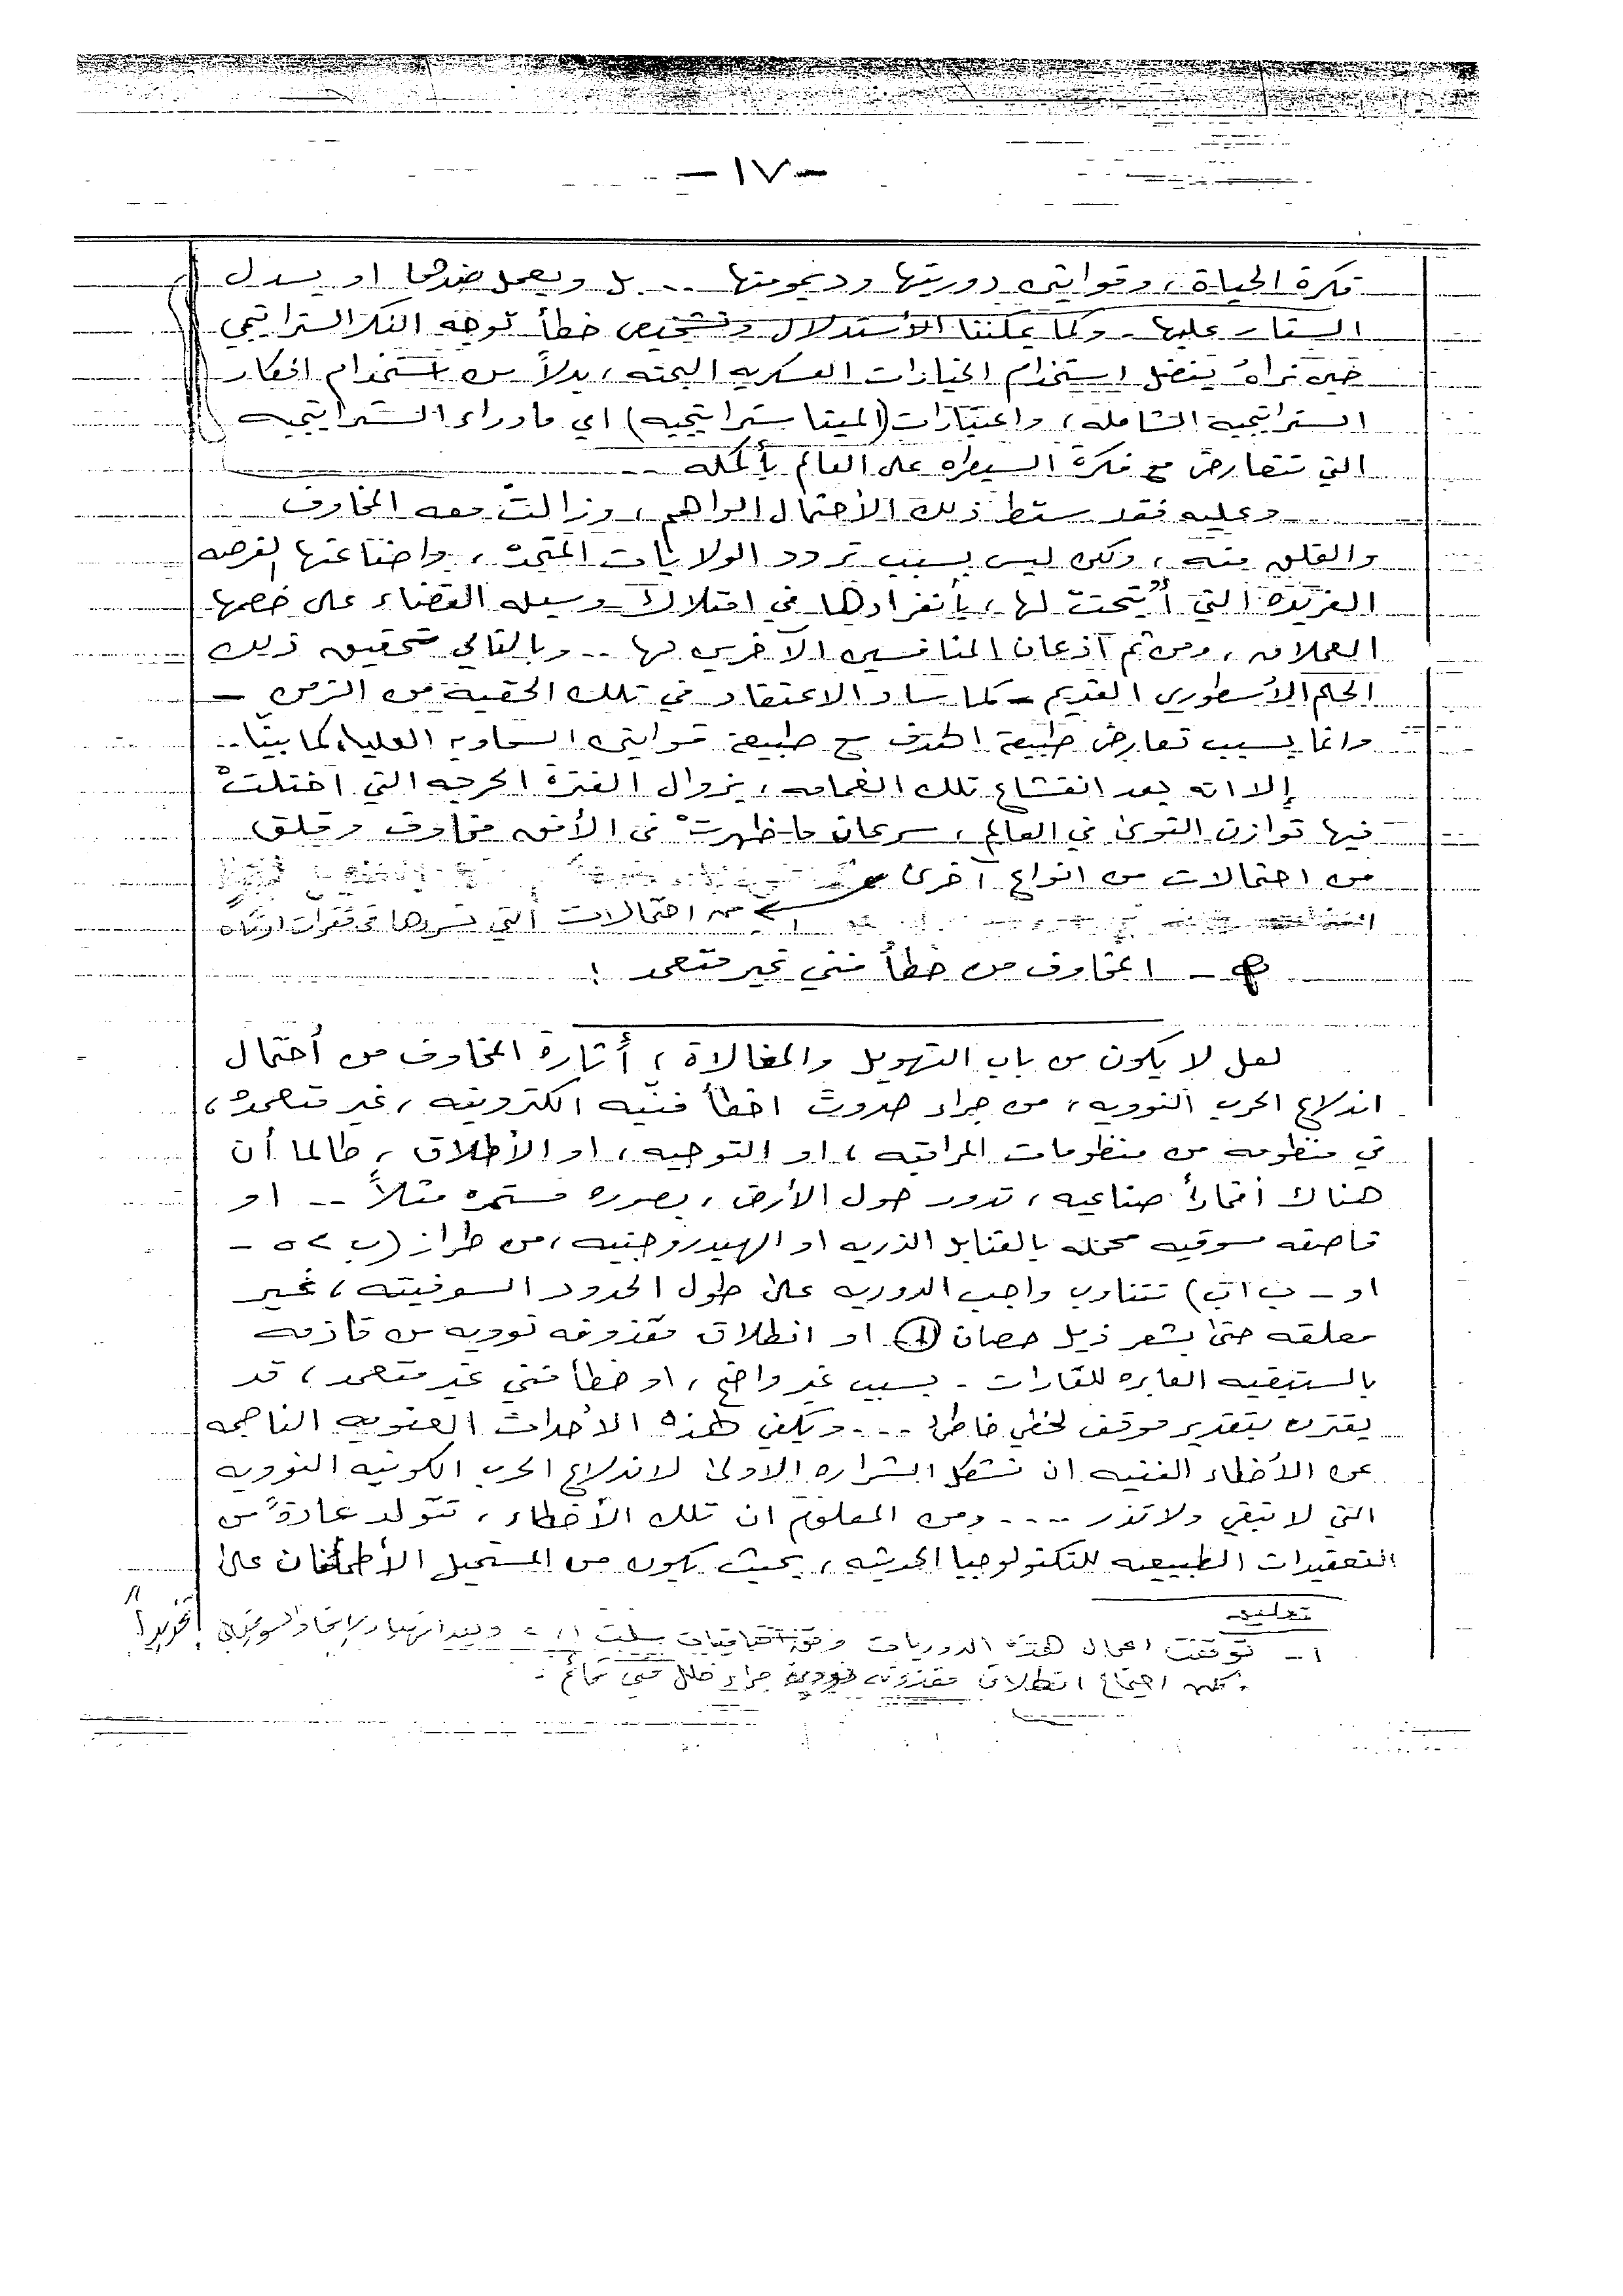 -١٧-
فكرة الحياة، وقوانين دوريتها وديمومتها ... بل ويعمل ضدها او يسدل
الستار عليها. وكما يمكننا الأستدلال وتشخيص خطأ توجه الفكر الستراتيجي
حين نراه يفضل استخدام الخيارات العسكريه البحته، بدلاً من استخدام افكار
الستراتيجية الشامله، واعتبارات (الميتا ستراتيجيه) اي ماوراء الستراتيجيه
التي تتعارض مع فكرة السيطره على العالم بأكمله ..
وعليه فقد سقط ذلك الأحتمال الواهم، وزالت معه المخاوف
والقلق منه، ولكن ليس بسبب تردد الولايات المتحدة، واضاعتها الفرصه
الفريده التي أُتيحت لها، بأنفرادها في امتلاك وسيله القضاء على خصمها
العملاق، ومن ثم اذعان المنافسين الآخرين لها .. وبالتالي تحقيق ذلك
الحلم الأسطوري القديم - كما ساد الاعتقاد في تلك الحقبة من الزمن -
وانما بسبب تعارض طبيعة الهدف مع طبيعة قوانين السماويه العليا، كما بيّنا..
إلا انه بعد انقشاع تلك الغمامه، بزوال الفترة الحرجه التي اختلتْ
فيها توازن القوى في العالم، سرعان ما ظهرتْ في الأفق مخاوف وقلق
من احتمالات من انواع آخرى
من احتمالات التي نسردها في فقرات ادناه
المخاوف من خطأ فني غير متعمد :
لعل لا يكون من باب التهويل والمغالاة، أثارة المخاوف من أحتمال
اندلاع الحرب النوويه، من جراء حدوث اخطأ فنّيه الكترونيه، غير متعمدة،
في منظومه من منظومات المراقبه، او التوجيه، او الأطلاق، طالما أن
هناك أقماراً صناعيه، تدور حول الأرض، بصوره مستمره مثلاً .. او
قاصفه سوقيه محمله بالقنابل الذريه او الهيدروجينيه، من طراز (ب ٥٢ -
او - ب اب) تتناوب واجب الدوريه على طول الحدود السوفيتيه، غير
معلقه حتى بشعر ذيل حصان (١) او انطلاق مقذوفه نوويه من قاذفه
بالستيقيه العابره للقارات - بسبب غير واضح، او خطأ فني غير متعمد، قد
يقترن بتقدير موقف لحظي خاطئ ... ويكفي لهذه الأحداث العفويه الناجمه
عن الأخطاء الفنيه ان تشكل الشراره الاولى لاندلاع الحرب الكونيه النوويه
التي لا تبقي ولا تذر .... ومن المعلوم ان تلك الأخطاء، تتولد عادةً من
التعقيدات الطبيعيه للتكنولوجيا الحديثه، بحيث يكون من المستحيل الأطمئنان على
تعليق
١- توقفت اعمال هذه الدوريات وفق اتفاقيات سلت ١، ٢ وبعد انهيار الاتحاد السوفيتي
لكن احتمال انطلاق مقذوفه نوويه جراء خلل فني قائم .